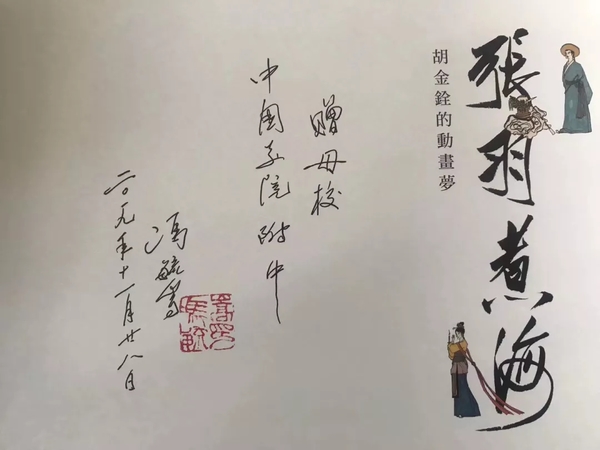 張羽煮海
胡金銓的動畫夢
赠母校
中国美院附中
冯毓嵩
二〇一九年十一月廿八日